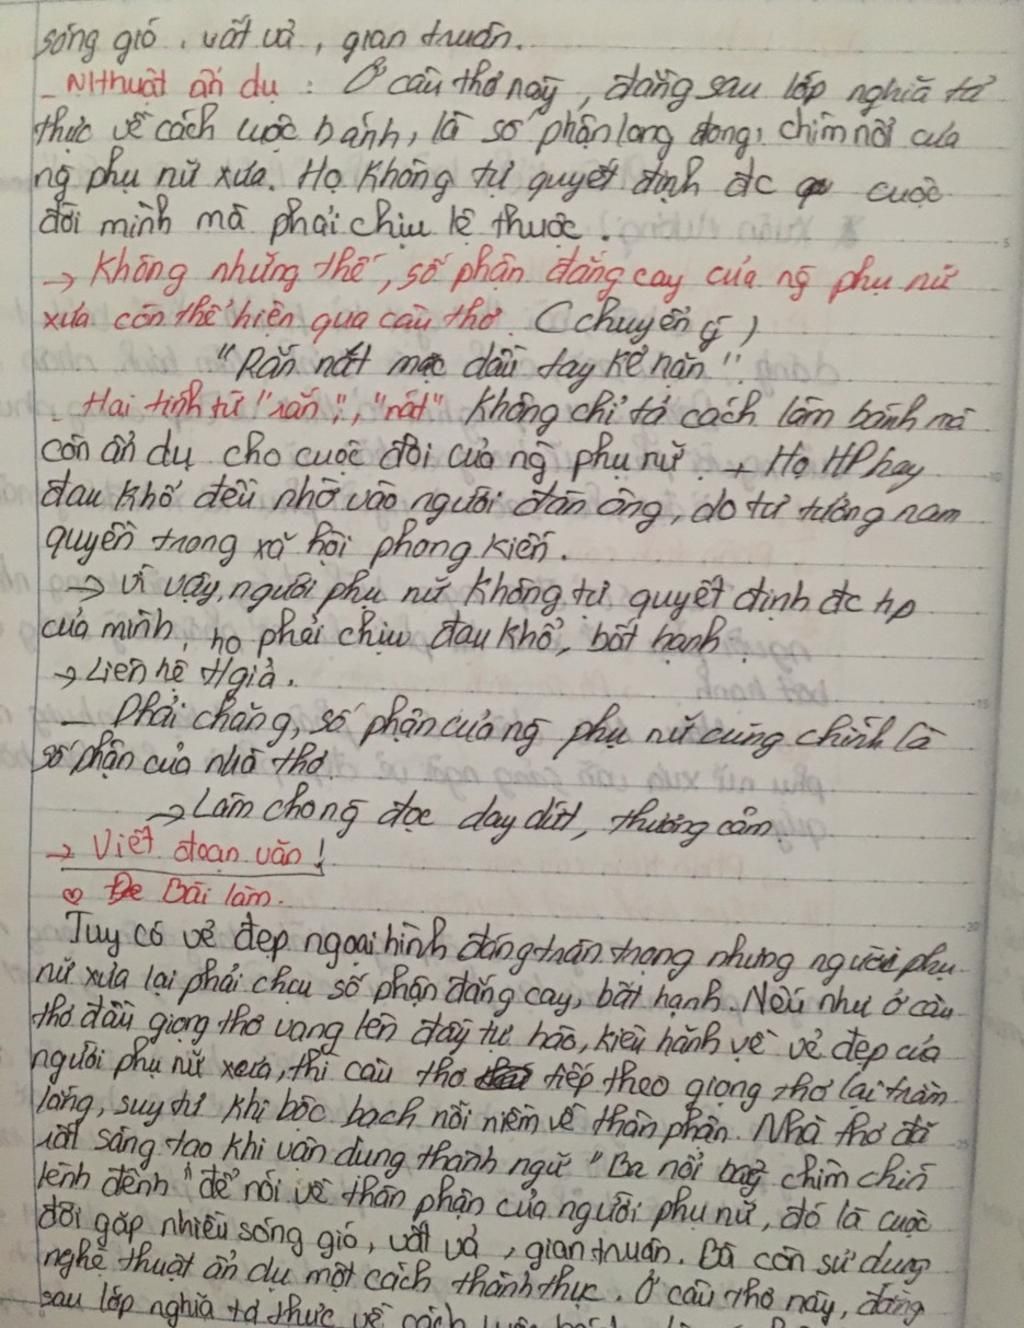 sóng gió, vất vả, gian truân.
- NThuật ẩn dụ : Ở câu thơ này, đằng sau lớp nghĩa tả
thực về cách luộc bánh, là số phận long đong, chìm nổi của
ng phụ nữ xưa. Họ không tự quyết định đc cuộc
đời mình mà phải chịu lệ thuộc.
→ Không những thế, số phận đắng cay của ng phụ nữ
xưa còn thể hiện qua câu thơ. (chuyển ý)
"Rắn nát mặc dầu tay kẻ nặn".
- Hai tính từ "rắn", "nát" không chỉ tả cách làm bánh mà
còn ẩn dụ cho cuộc đời của ng phụ nữ. → Họ HP hay
đau khổ đều nhờ vào người đàn ông, do tư tưởng nam
quyền trong xã hội phong kiến.
→ Vì vậy, người phụ nữ không tự quyết định đc hp
của mình, họ phải chịu đau khổ, bất hạnh.
→ Liên hệ tgiả.
- Phải chăng, số phận của ng phụ nữ cũng chính là
số phận của nhà thơ.
→ Làm cho ng đọc day dứt, thương cảm.
→ Viết đoạn văn!
♡ Bài làm.
Tuy có vẻ đẹp ngoại hình đáng trân trọng nhưng người phụ
nữ xưa lại phải chịu số phận đắng cay, bất hạnh. Nếu như ở câu
thơ đầu giọng thơ vang lên đầy tự hào, kiêu hãnh về vẻ đẹp của
người phụ nữ xưa, thì câu thơ tiếp theo giọng thơ lại trầm
lắng, suy tư khi bộc bạch nỗi niềm về thân phận. Nhà thơ đã
rất sáng tạo khi vận dụng thành ngữ "Ba nổi bảy chìm chín
lênh đênh" để nói về thân phận của người phụ nữ, đó là cuộc
đời gặp nhiều sóng gió, vất vả, gian truân. Bà còn sử dụng
nghệ thuật ẩn dụ một cách thành thục. Ở câu thơ này, đằng
sau lớp nghĩa tả thực về cách luộc